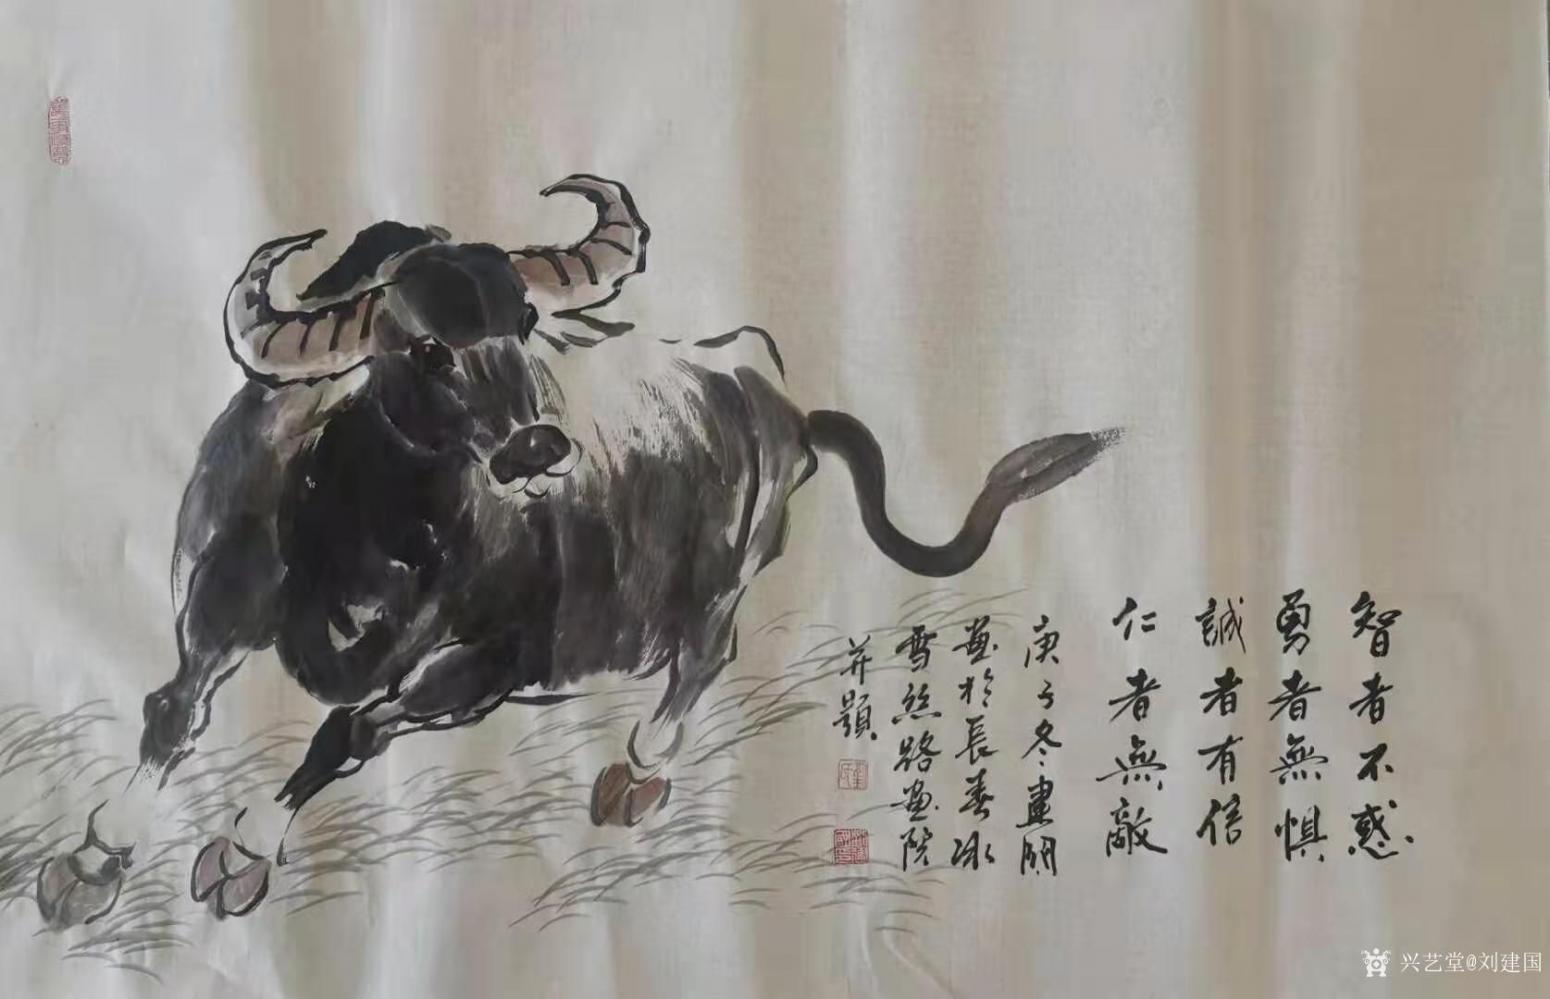 智者不惑
勇者無惧
誠者有信
仁者無敵
庚子冬建國
画於長春冰
雪絲路画院
并題
兴艺堂@刘建国